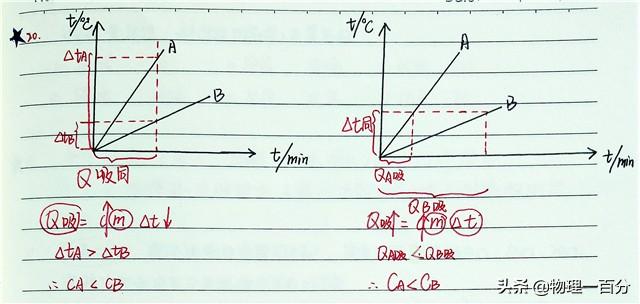 ★20.
t/℃
A
ΔtA
B
ΔtB
t/min
Q吸同
Q吸= c↑ m Δt↓
ΔtA > ΔtB
∴ cA < cB
t/℃
A
B
Δt同
t/min
QA吸
QB吸
Q吸↑ = c↑ m Δt
QA吸 < QB吸
∴ CA < CB
头条@物理一百分